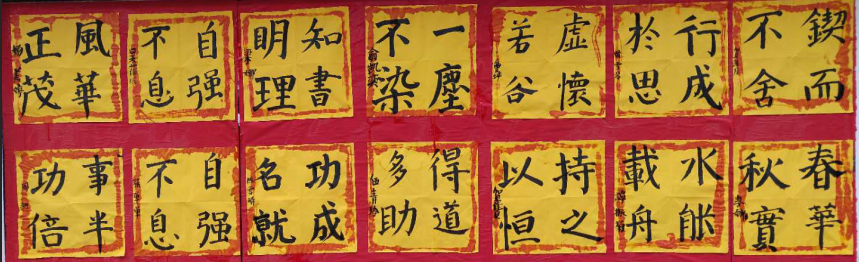 鍥而不舍
行成於思
虛懷若谷
一塵不染
知書明理
自强不息
風華正茂
春華秋實
水能載舟
持之以恒
得道多助
功成名就
自强不息
事半功倍